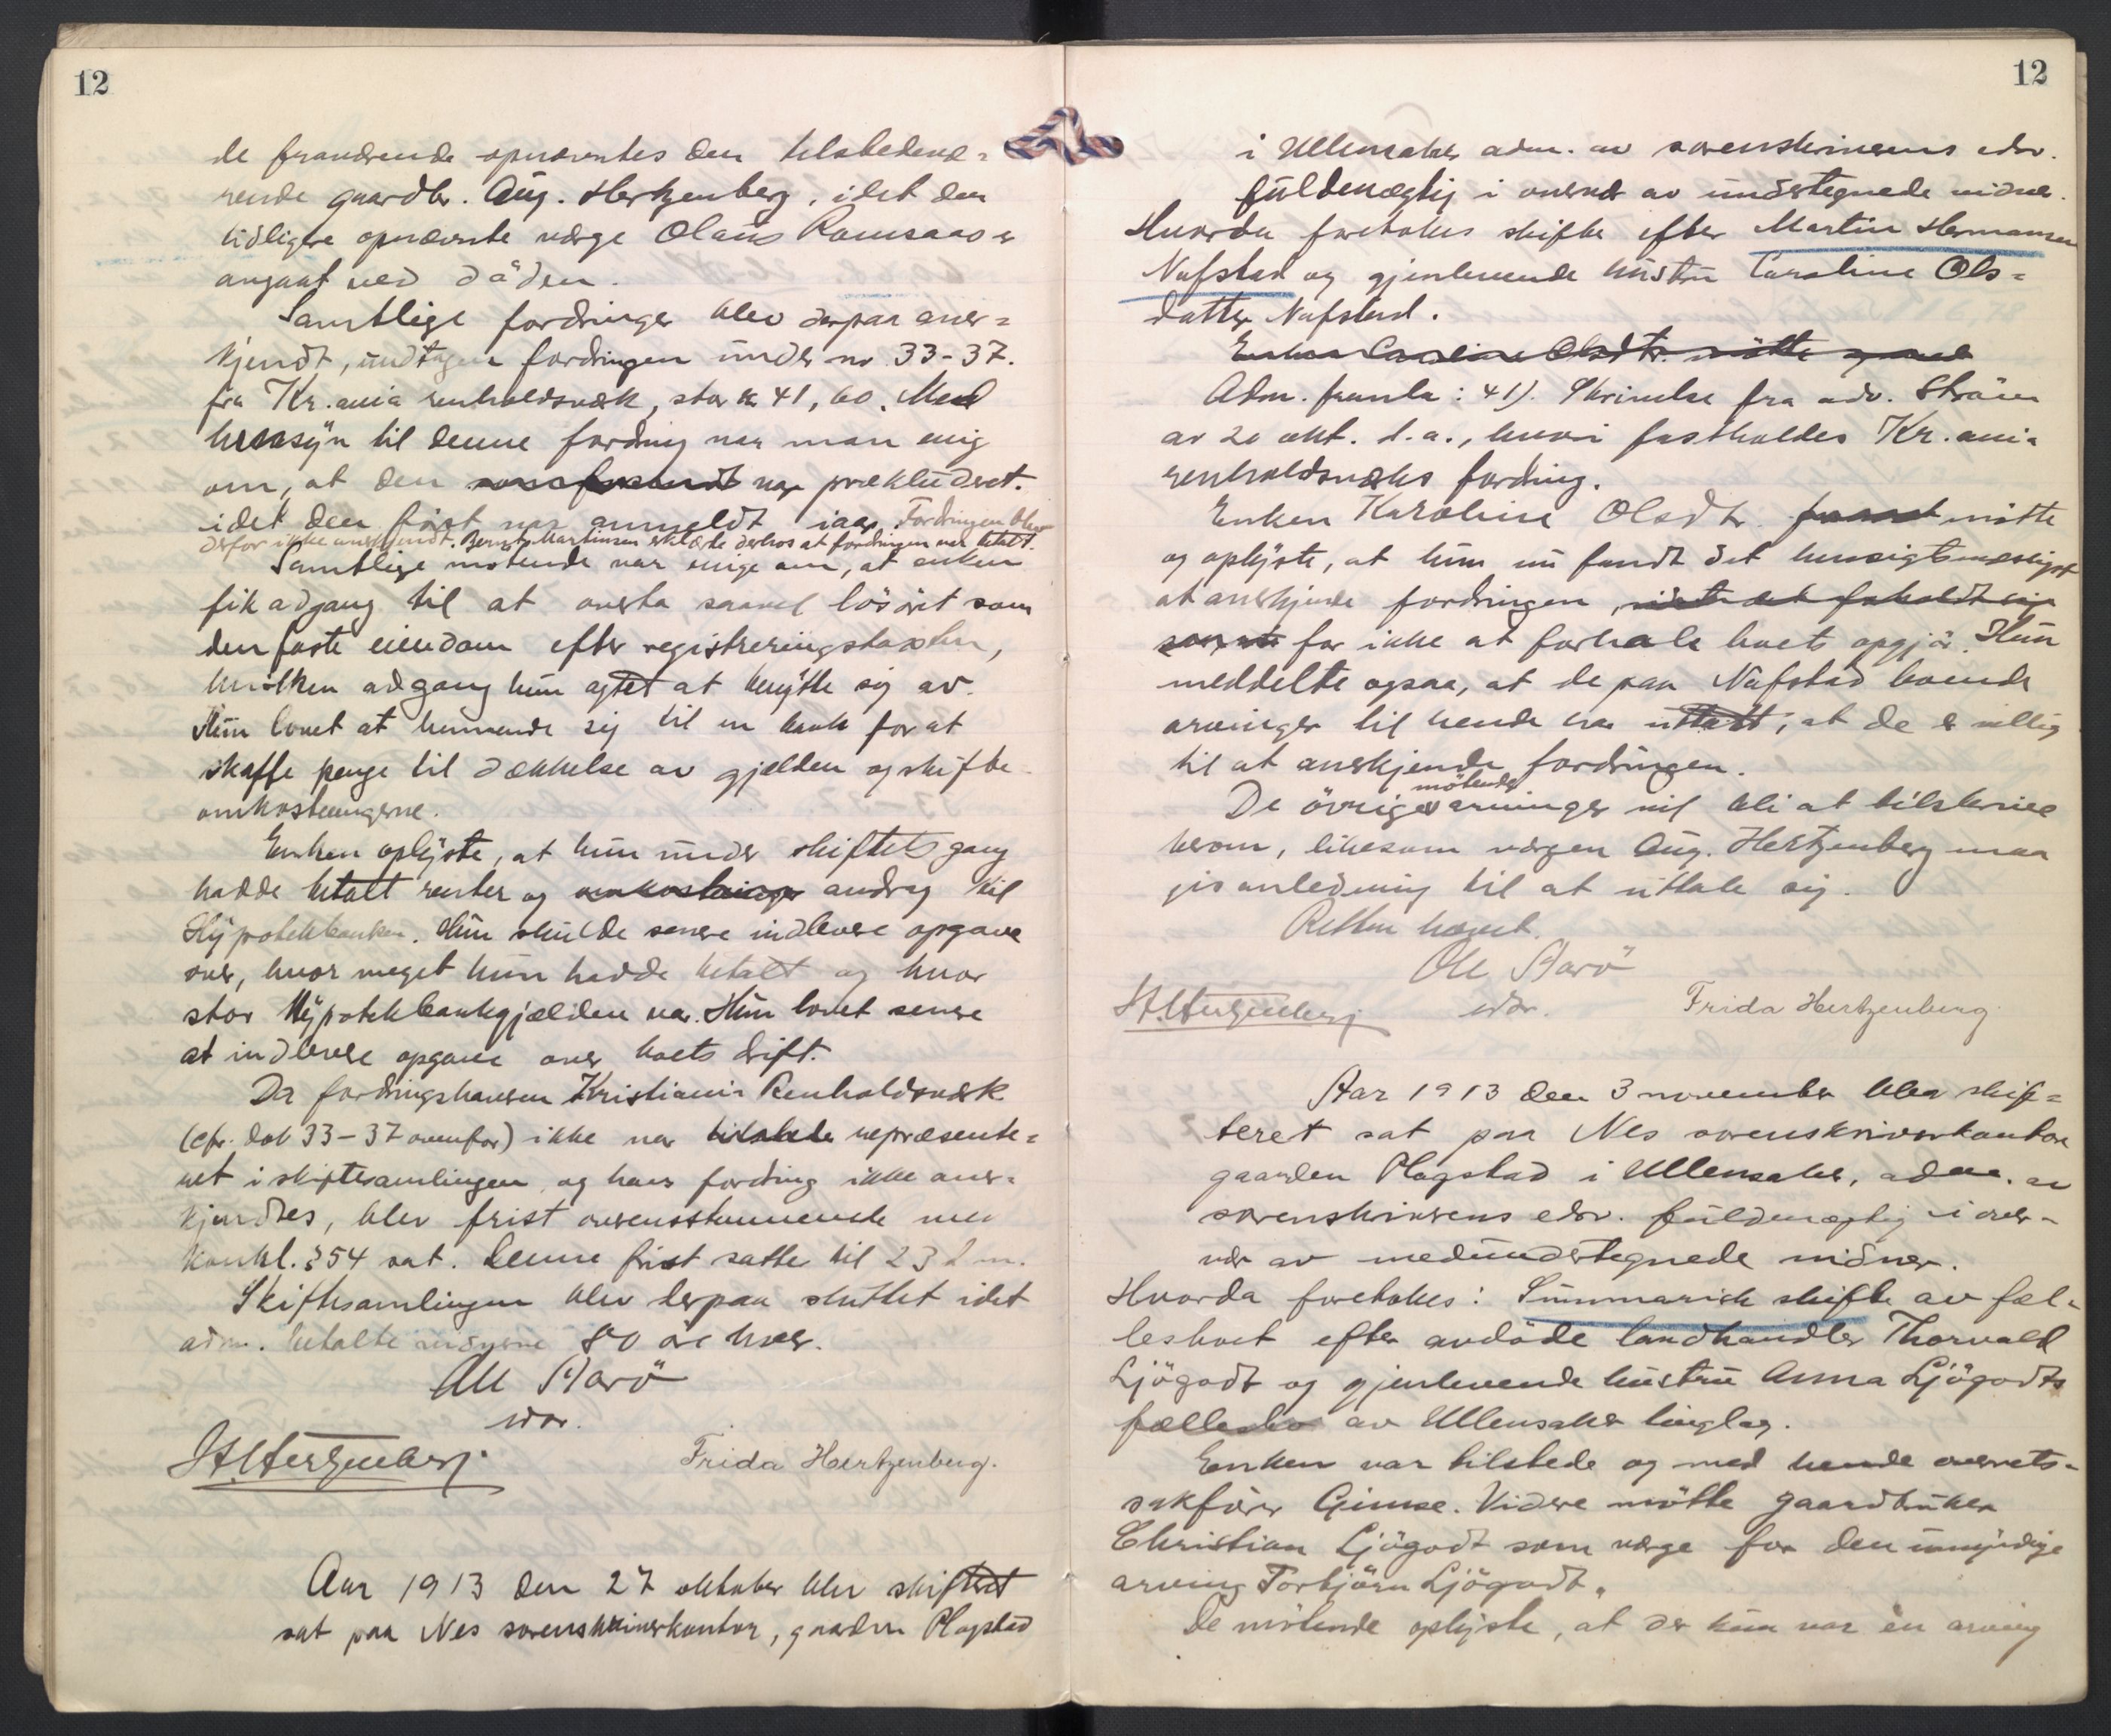 12
de fraværende opnævntes den tilstedevæ=
rende gaardbr. Aug. Hertzenberg, idet den
tidligere opnævnte værge Olaus Ramsaas er
avgaat ved döden.
Samtlige fordringer blev derpaa aner=
kjendt, undtagen fordringen under no 33-37.
fra Kr.ania renholdsværk, stor kr 41,60. Med
hensyn til denne fordring var man enig
om, at den var prækluderet.
idet den först var anmeldt iaar. Fordringen blev
derfor ikke anerkjendt. Bernt Martinsen erklærte derhos at fordringen var betalt.
Samtlige mötende var enige om, at enken
fik adgang til at overta saavel lösöret som
den faste eiendom efter registreringstaxten,
hvilken adgang hun agtet at benytte sig av.
Hun lovet at henvende sig til en bank for at
skaffe penge til dækkelse av gjelden og skifte
omkostningerne.
Enken oplyste, at hun under skiftets gang
hadde betalt renter og omkostninger avdrag til
Hypotekbanken. Hun skulde senere indlevere opgave
over, hvor meget hun hadde betalt og hvor
stor Hypotekbankgjælden var. Hun lovet senere
at indlevere opgave over boets drift.
Da fordringshaveren Kristiania Renholdsværk
(cfr. dok 33-37 ovenfor) ikke var tilstede repræsente=
ret i skiftesamlingen og hans fordring ikke aner=
kjendtes, blev frist overensstemmende med
konkl. § 54 sat. Denne frist sattes til 23 d.m.
Skiftesamlingen blev derpaa sluttet idet
adm. betalte vidnerne 80 öre hver.
Ole Aarö
edsv.
H. Hertzenberg.
Frida Hertzenberg.
Aar 1913 den 27 oktober blev skifteret
sat paa Nes sorenskriverkontor, gaarden Plogstad
12
i Ullensaker adm. av sorenskriverens edsv.
fuldmægtig i overvær av undertegnede vidner.
Hvorda foretokes skifte efter Martin Hermansen
Nafstad og gjenlevende hustru Caroline Ols=
datter Nafstad.
Enken Caroline Olsdtr. mötte
Adm. fremla: 41). Skrivelse fra adv. Ström
av 20 okt. d.a., hvori fastholdes Kr.ania
renholdsværks fordring.
Enken Karoline Olsdtr. mötte
og oplyste, at hun nu fandt det hensigtsmæssigst
at anerkjende fordringen, idet det forholdt sig
for ikke at forhale boets opgjör. Hun
meddelte ogsaa, at de paa Nafstad boende
arvinger til hende har uttalt, at de er villig
til at anerkjende fordringen.
mötende
De övrige arvinger vil bli at tilskrive
herom, likesom værgen Aug. Hertzenberg maa
gis anledning til at uttale sig.
Retten hævet.
Ole Aarö
edsv.
H. Hertzenberg
Frida Hertzenberg
Aar 1913 den 3 november blev skif=
teret sat paa Nes sorenskriverkontor
gaarden Plogstad i Ullensaker, adm. av
sorenskriverens edsv. fuldmægtig i over=
vær av medundertegnede vidner.
Hvorda foretokes: Summarisk skifte av fæl=
lesboet efter avdöde landhandler Thorvald
Ljögodt og gjenlevende hustru Anna Ljögodts
fællesbo av Ullensaker tinglag.
Enken var tilstede og med hende overrets=
sakförer Gimse. Videre mötte gaardbruker
Christian Ljögodt som værge for den umyndige
arving Torbjörn Ljögodt.
De mötende oplyste, at der kun var én arving